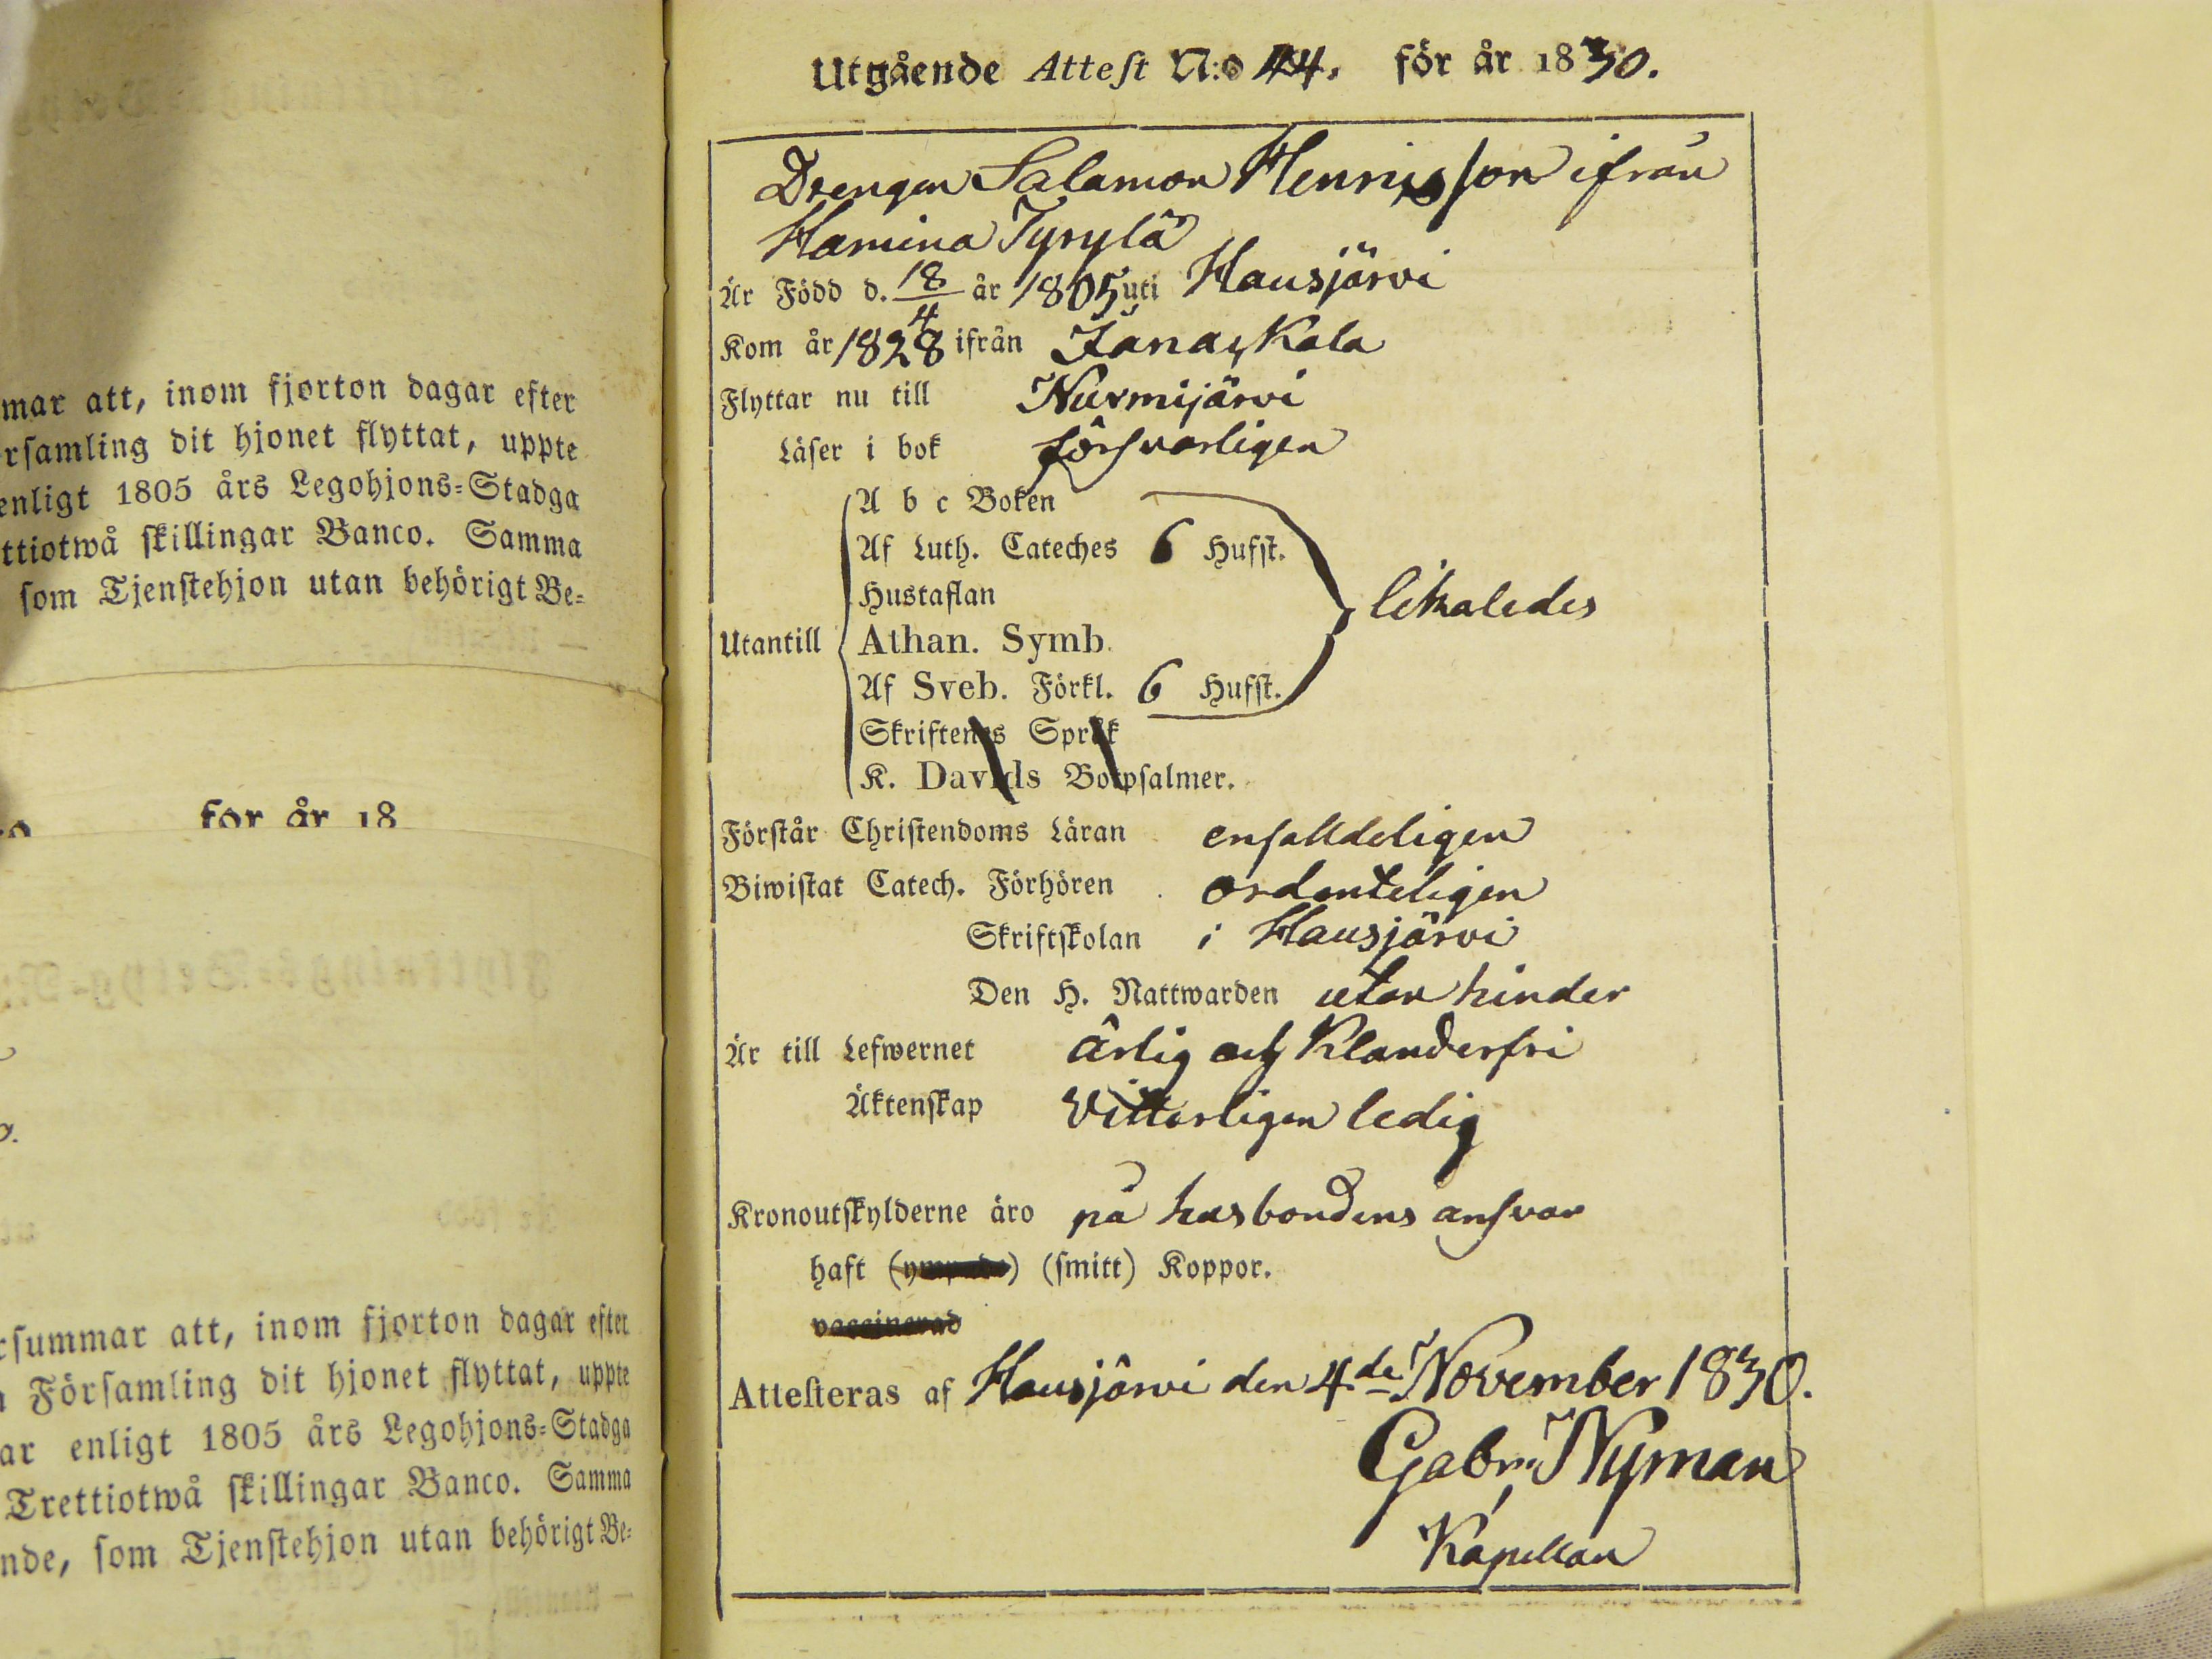 mar att, inom fjorton dagar efter
rsamling dit hjonet flyttat, uppte
enligt 1805 års Legohjons-Stadga
ttiotwå skillingar Banco. Samma
som Tjenstehjon utan behörigt Be-
for år 18
rsummar att, inom fjorton dagar efter
n Församling dit hjonet flyttat, uppte
ar enligt 1805 års Legohjons-Stadga
Trettiotwå skillingar Banco. Samma
nde, som Tjenstehjon utan behörigt Be-
Utgående Attest N:o 44. för år 1830.
Drengen Salamon Henrisson ifrån
Hamina Tyrylä
Är Född d. 18/4 år 1805 uti Hausjärvi
Kom år 1828 ifrån Janackala
Flyttar nu till Nurmijärvi
Läser i bok försvarligen
A b c Boken
Af Luth. Cateches 6 Hufst.
Hustaflan likaledes
Utantill Athan. Symb.
Af Sveb. Förkl. 6 Hufst.
Skriftenes Språk
K. Davids Botpsalmer.
Förstår Christendoms Läran enfalldeligen
Biwistat Catech. Förhören ordenteligen
Skriftskolan i Hausjärvi
Den H. Nattwarden utan hinder
Är till Lefwernet ärlig och Klanderfri
Äktenskap Vitterligen ledig
Kronoutskylderne äro på husbondens ansvar
haft (ympade) (smitt) Koppor.
vaccinerad
Attesteras af Hausjärvi den 4de November 1830.
Gabr: Nyman
Kapellan